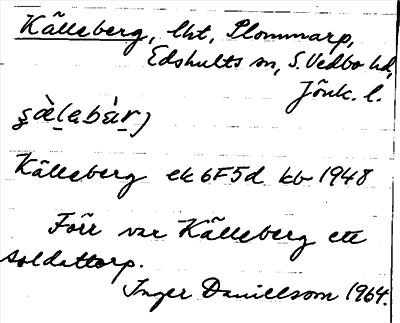 Källeberg, lht, Plommarp,
Edshults sn, S. Vedbo hd,
Jönk. l.
Källeberg ek 6F5d kb 1948
Förr var Källeberg ett
soldattorp.
Inger Danielsson 1964.